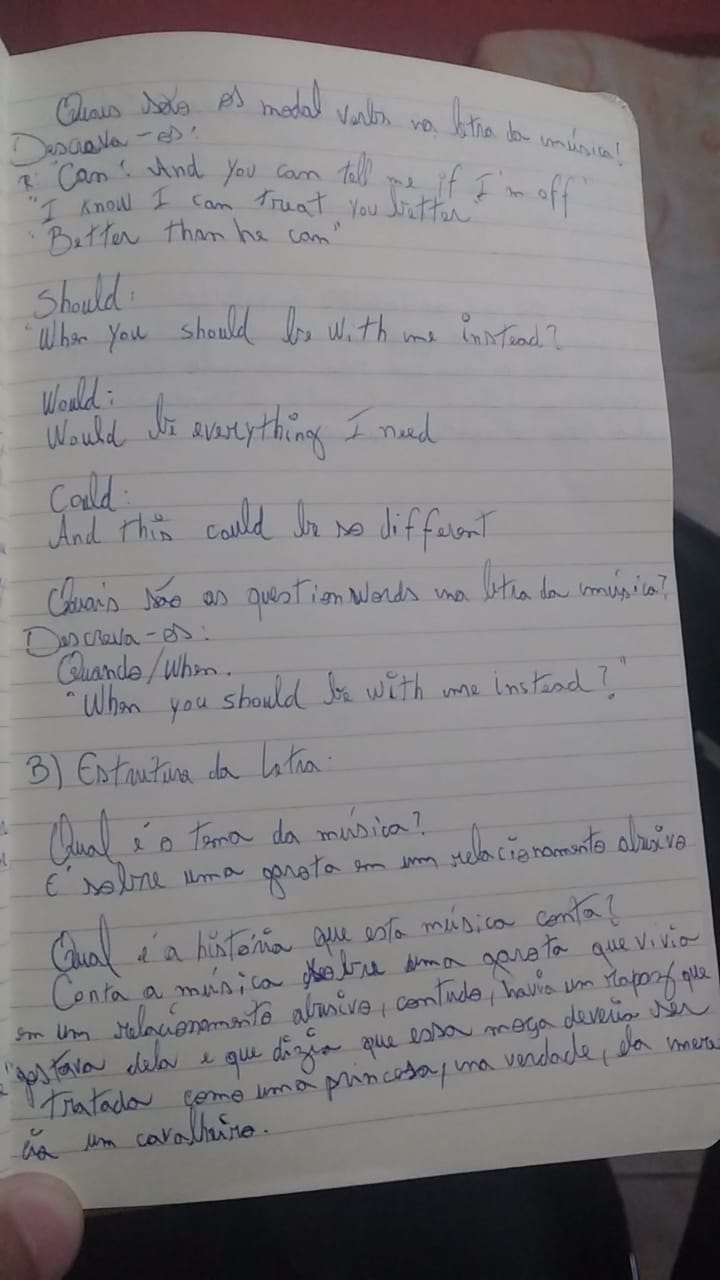 Quais são os modal verbs na letra da música!
Descreva-os:
R: "Can": And you can tell me if I'm off"
"I know I can treat you better"
"Better than he can"
Should:
"When you should be with me instead?
Would:
Would be everything I need
Could:
And this could be so different
Quais são as question words na letra da música?
Descreva-os:
Quando/When.
"When you should be with me instead?"
B) Estrutura da letra.
Qual é o tema da música?
É sobre uma garota em um relacionamento abusivo
Qual é a história que esta música conta?
Conta a música sobre uma garota que vivia
em um relacionamento abusivo, contudo, havia um rapaz que
gostava dela e que dizia que essa moça deveria ser
tratada como uma princesa, na verdade, ela mere
cia um cavalheiro.